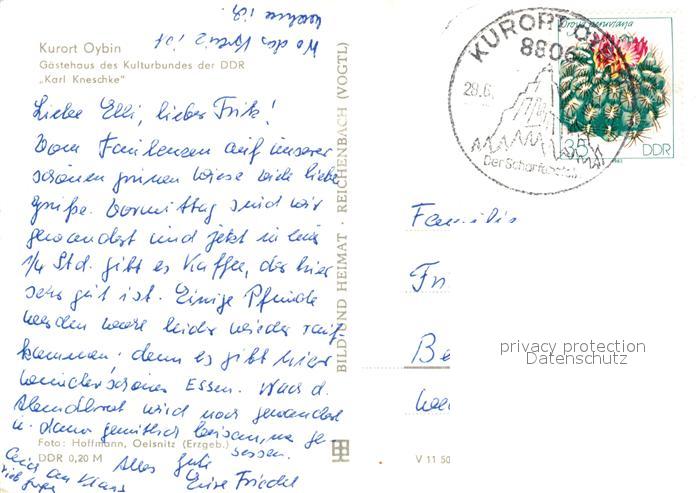 Wo das Kreuz ist
wohne ich.
Kurort Oybin
Gästehaus des Kulturbundes der DDR
„Karl Kneschke"
Liebe Elli, lieber Fritz!
Vom Faulenzen auf unserer
schönen grünen Wiese viele liebe
Grüße. Vormittag sind wir
gewandert und jetzt in einer
1/4 Std. gibt es Kaffee, der hier
sehr gut ist. Einige Pfunde
werden wir leider wieder rauf-
kommen. denn es gibt hier
wunderschönes Essen. Nach d.
Abendbrot wird noch gewandert
u. dann gemütlich beisammen ge
sessen.
Foto: Hoffmann, Oelsnitz (Erzgeb.)
DDR 0,20 M
Alles Gute
Eure Friedel
BILD UND HEIMAT · REICHENBACH (VOGTL)
V 11 50
KURORT OYBIN
8806
29.6.
Der Scharfenstein
Oroya peruviana
35
DDR
1983
Familie
Fri
Be
privacy protection
Datenschutz